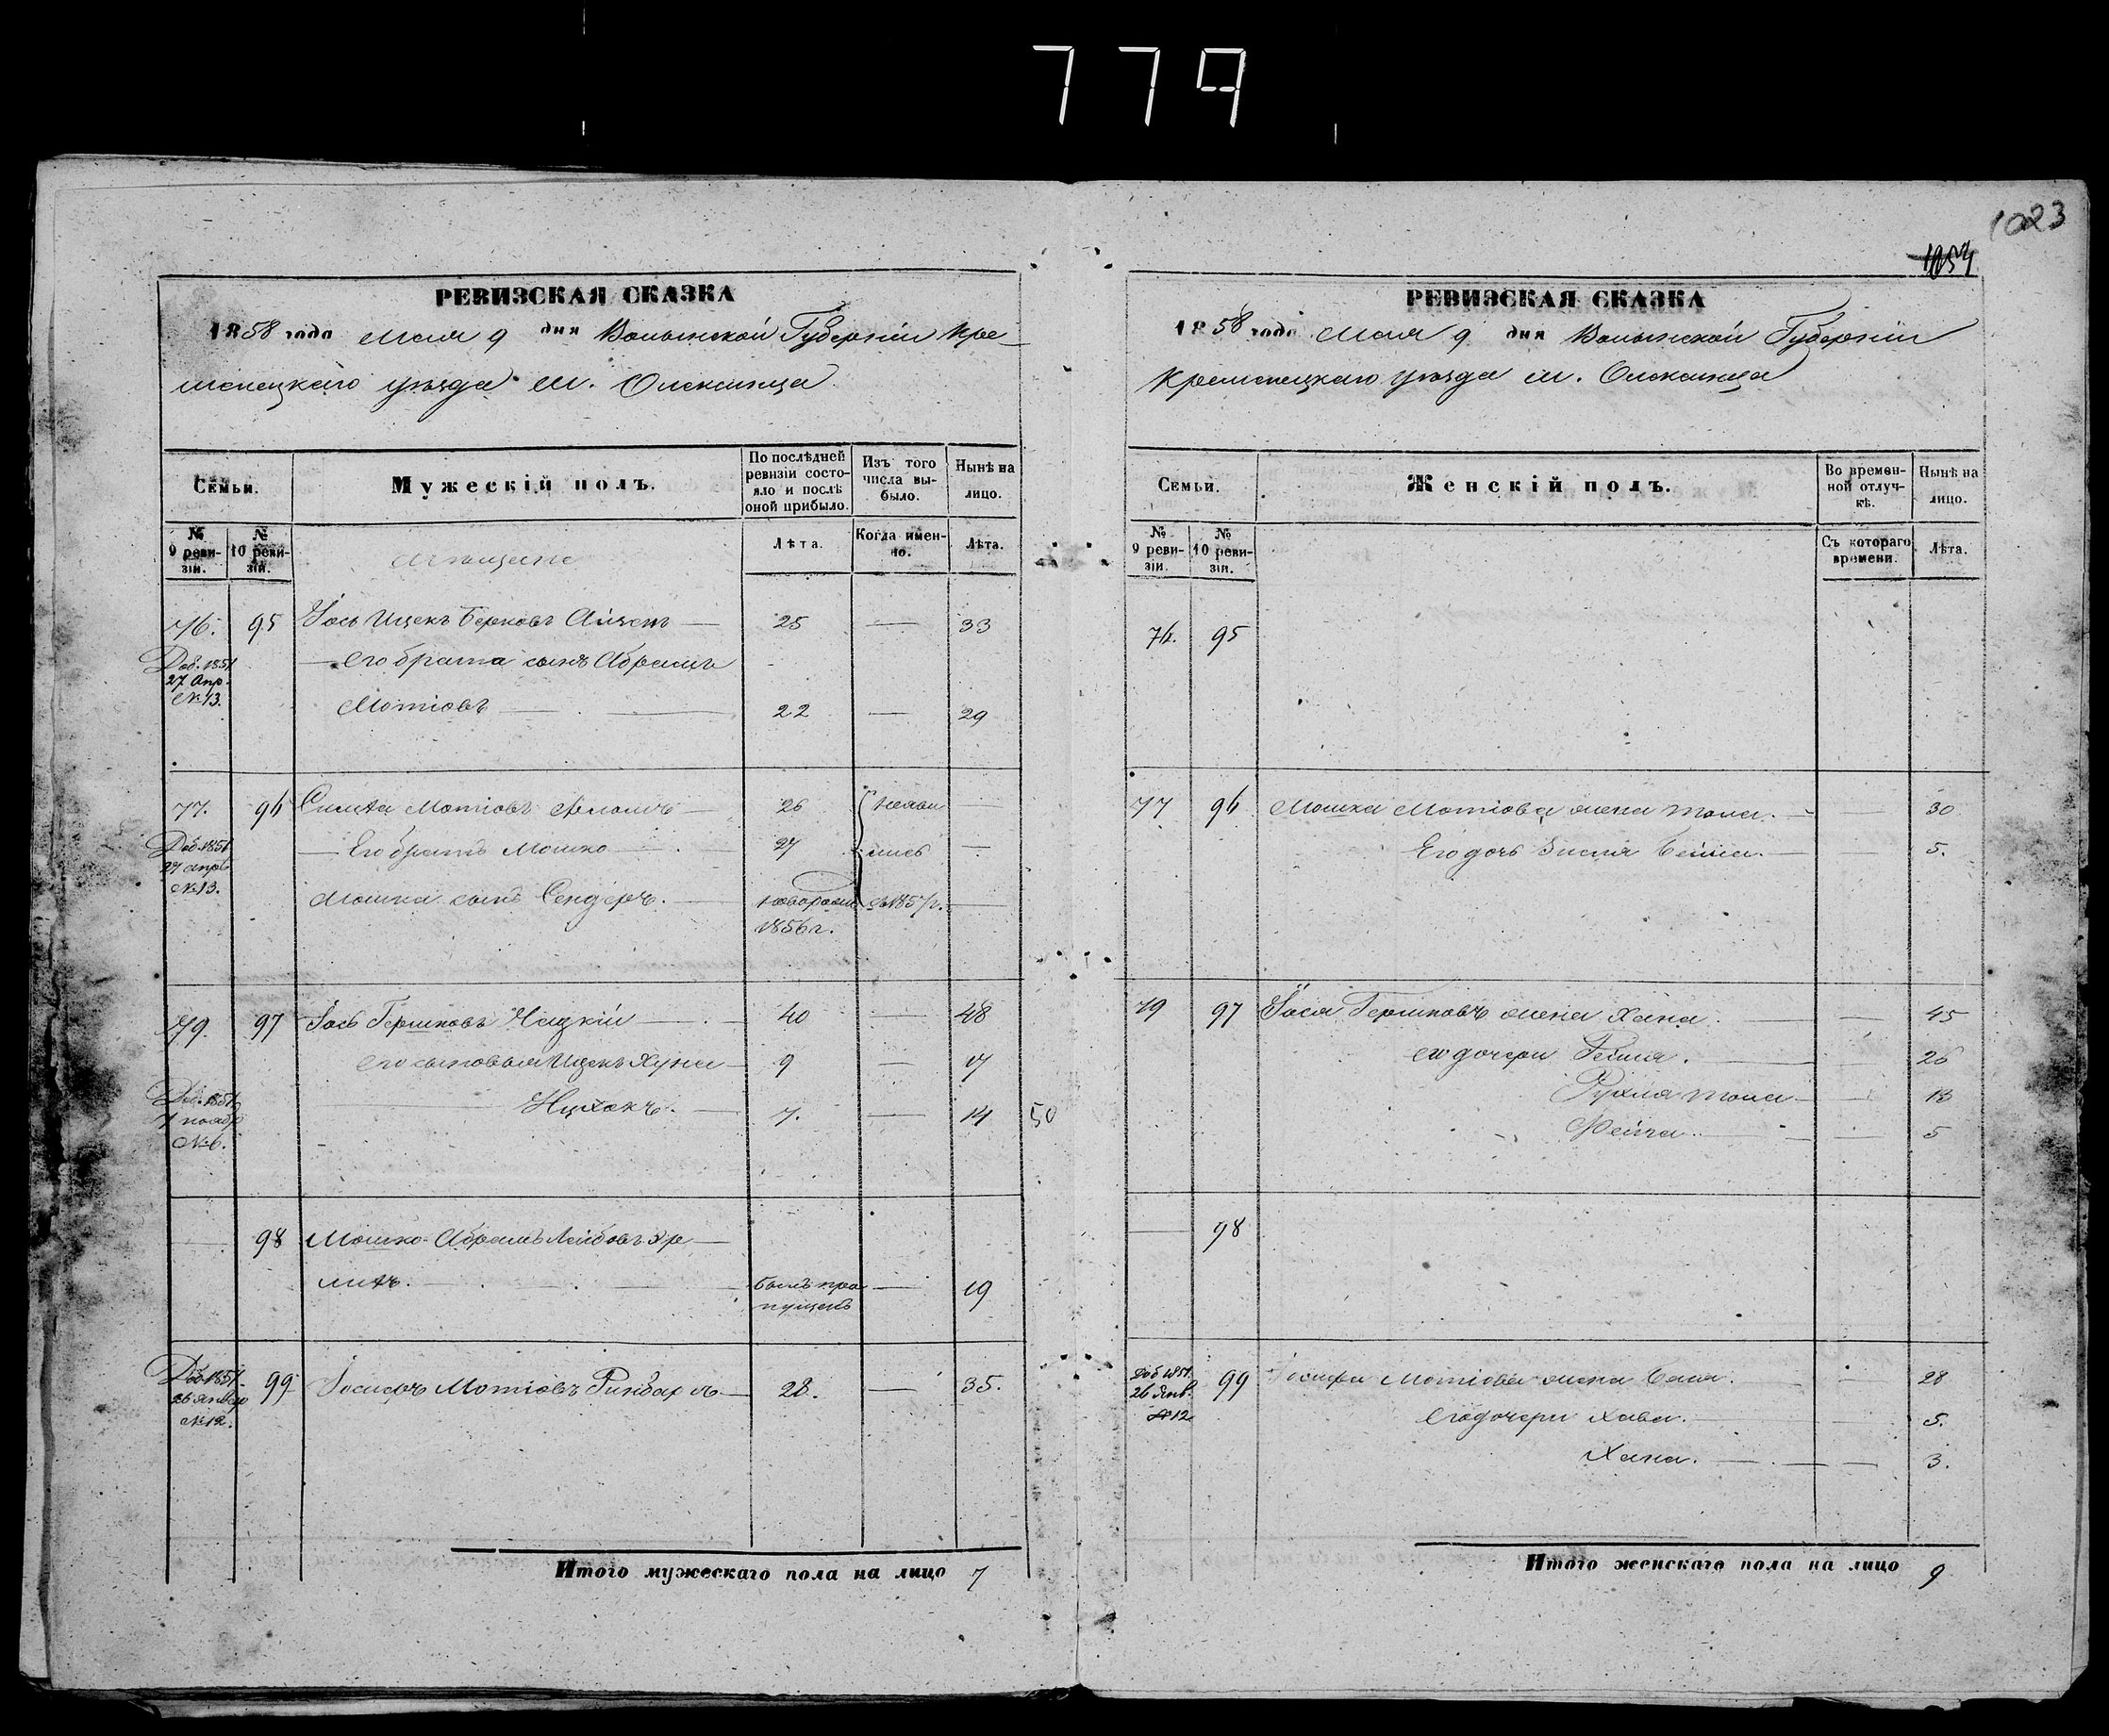 779
1023
РЕВИЗСКАЯ СКАЗКА
1858 года Мая 9 дня Волынской Губерніи Кре-
менецкаго уѣзда м. Олексинца
Семьи.
Мужескій полъ.
По послѣдней ревизіи состояло и послѣ оной прибыло.
Изъ того числа выбыло.
Нынѣ на лицо.
№ 9 ревизіи.
№ 10 ревизіи.
Лѣта.
Когда именно.
Лѣта.
Мѣщане
76. 95 Іось Ицекъ Берковъ — 25 — 33
Доб. 1851
27 Апр.
№ 13.
Его брата сынъ Абрамъ
Мотіовъ — 22 — 29
77. 96 Мотіовъ — 26 — —
Доб. 1851
27 апрѣ
№ 13.
Его братъ Мошко — 27 —
Мошка сынъ Сендеръ. — 1857 г. —
1856 г.
79. 97 Іось Гершковъ — 40 — 48
Его сыновья Ицекъ Хуна — 9 — 17
— 7. — 14 50
Доб. 1851
№ 6.
— 98 Мошко-Абрамъ Лейбовъ Эр
лихъ. — былъ про — 19
пущенъ
Доб 1851
26 Январ
№ 12.
99 Іосифъ Мотіовъ — 28. — 35.
Итого мужескаго пола на лицо 7
РЕВИЗСКАЯ СКАЗКА
1858 года Мая 9 дня Волынской Губерніи
Кременецкаго уѣзда м. Олексинца
Семьи.
Женскій полъ.
Во временной отлучкѣ.
Нынѣ на лицо.
№ 9 ревизіи.
№ 10 ревизіи.
Съ котораго времени.
Лѣта.
76. 95
77 96 Мошка Мотіова жена — — 30
Его дочь Бейла. — — 5.
79 97 Іося Гершковъ жена Хана. — 45
его дочери — — 26
Рухля — — 13
Фейга. — — 5
— 98
Доб 1851
26 Янв.
№ 12
99 Іосифа Мотіова жена — — 28
Его дочери Хава. — — 5.
Хана. — — 3.
Итого женскаго пола на лицо 9